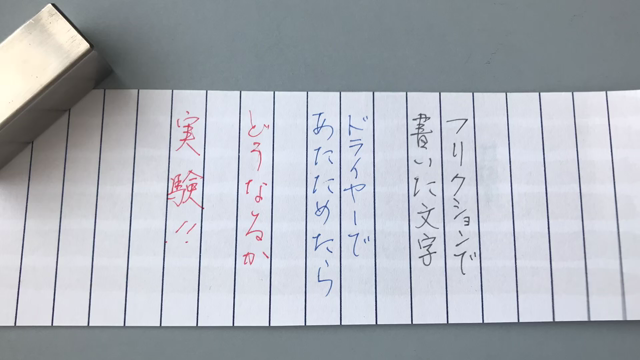 フリクションで
書いた文字
ドライヤーで
あたためたら
どうなるか
実験!!